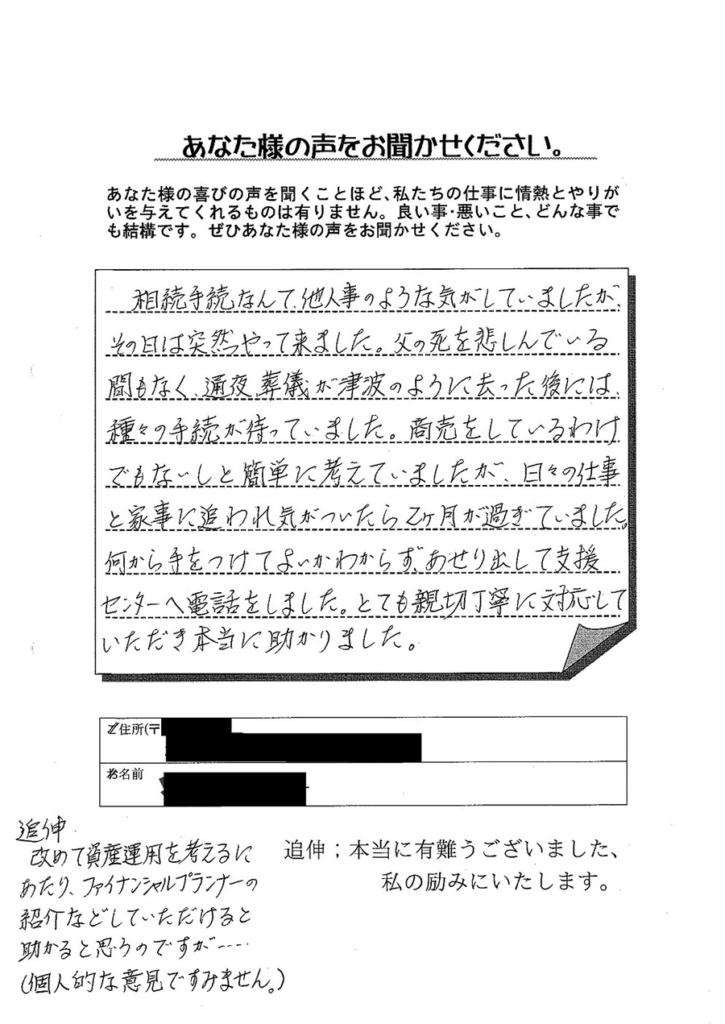 あなた様の声をお聞かせください。
あなた様の喜びの声を聞くことほど、私たちの仕事に情熱とやりが
いを与えてくれるものは有りません。良い事・悪いこと、どんな事で
も結構です。ぜひあなた様の声をお聞かせください。
相続手続なんて、他人事のような気がしていましたが、
その日は突然やって来ました。父の死を悲しんでいる
間もなく、通夜、葬儀が津波のように去った後には、
種々の手続が待っていました。商売をしているわけ
でもないしと簡単に考えていましたが、日々の仕事
と家事に追われ気がついたら2ヶ月が過ぎていました。
何から手をつけてよいかわからず、あせり出して支援
センターへ電話をしました。とても親切丁寧に対応して
いただき本当に助かりました。
ご住所(〒
お名前
追伸
改めて資産運用を考えるに
あたり、ファイナンシャルプランナーの
紹介などしていただけると
助かると思うのですが----
(個人的な意見ですみません。)
追伸；本当に有難うございました、
私の励みにいたします。